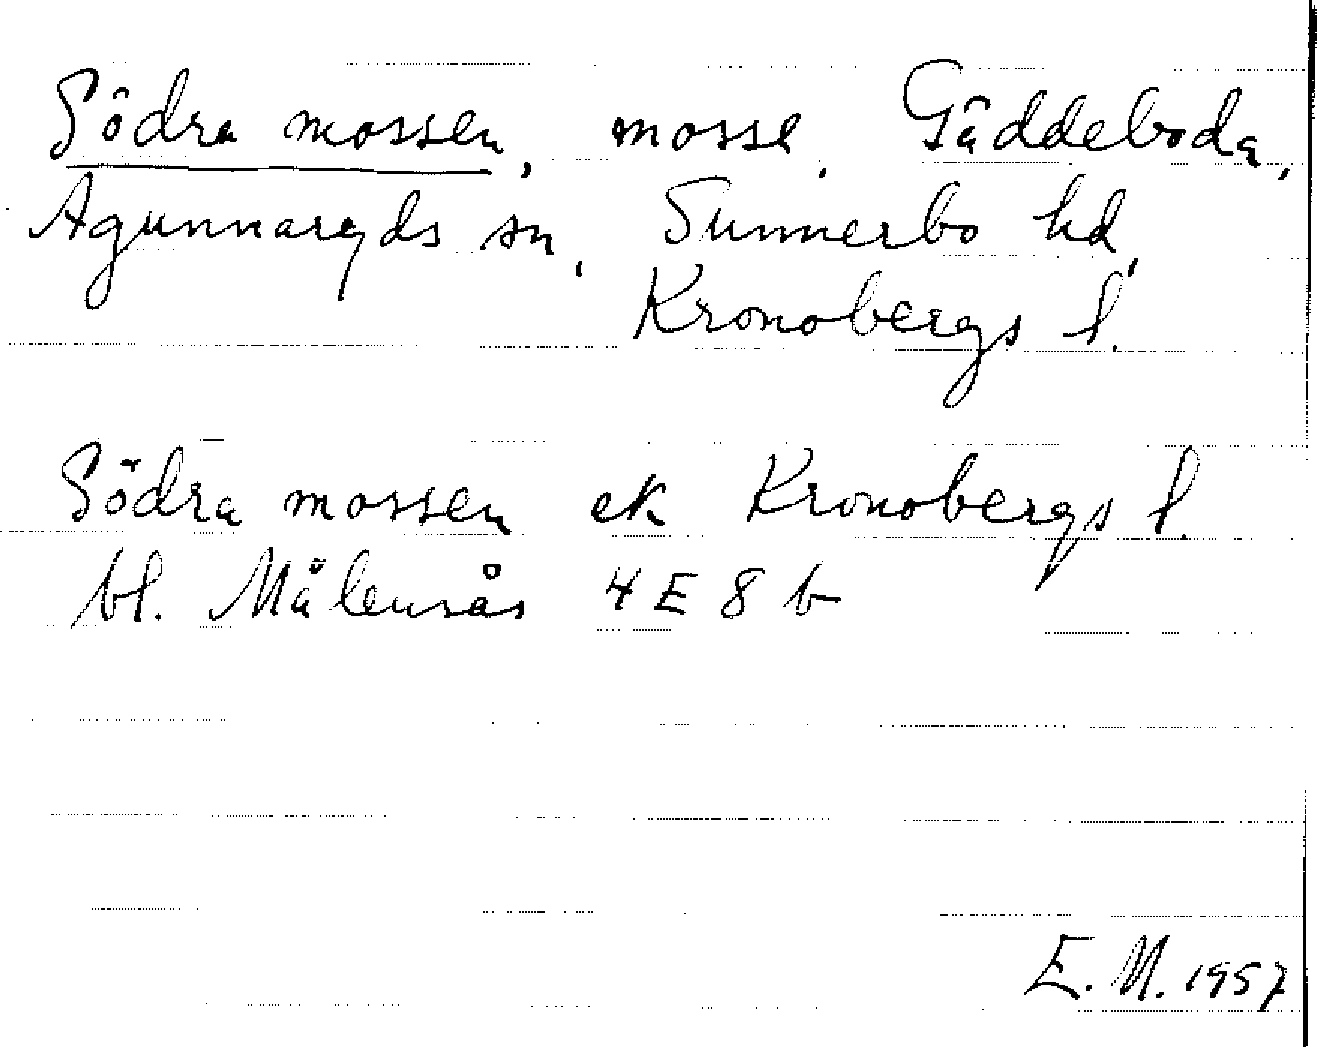 Södra mossen, mosse, Gäddeboda,
Agunnaryds sn, Sunnerbo hd,
Kronobergs l.
Södra mossen ek Kronobergs l.
bl. Målensås 4 E 8 b
E. M. 1957